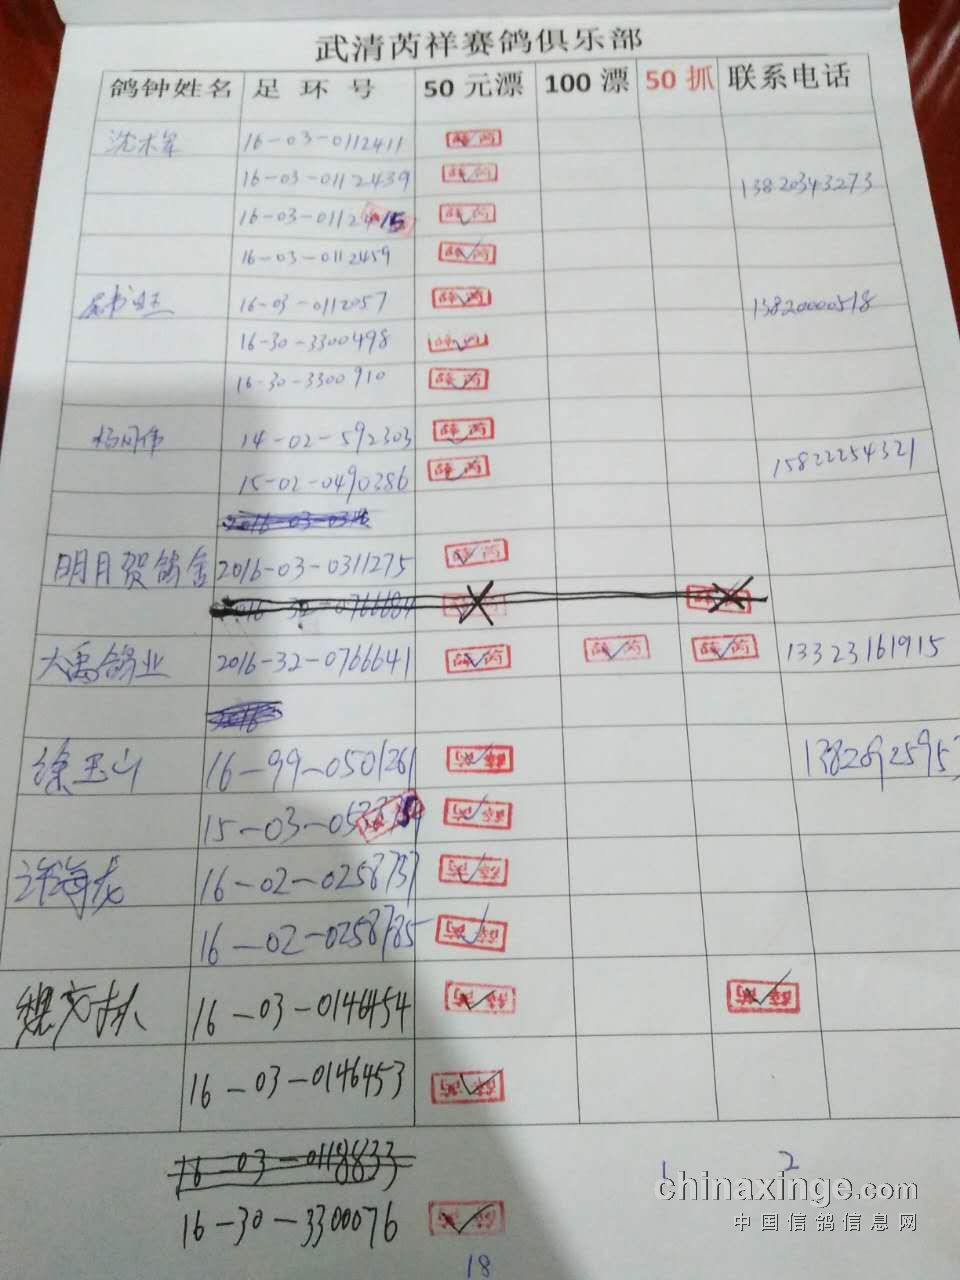 武清芮祥赛鸽俱乐部
鸽钟姓名 足环号 50元漂 100漂 50抓 联系电话
16-03-0112411 薛芮
16-03-0112439 薛芮 13820343273
16-03-0112415 薛芮
16-03-0112459 薛芮
16-03-0112057 薛芮 13820000518
16-30-3300498 薛芮
16-30-3300910 薛芮
14-02-592303 薛芮
15-02-0490386 薛芮 15822254321
明月贺鸽舍 2016-03-0311275 薛芮
大禹鸽业 2016-32-0766641 薛芮 薛芮 薛芮 13323161915
徐玉山 16-99-0501261 薛芮
15-03- 薛芮
许海龙 16-02-0258737 薛芮
16-02-0258785 薛芮
魏 16-03-0146454 薛芮 薛芮
16-03-0146453 薛芮
16-03-0118833
16-30-3300076 薛芮
18 1 2
chinaxinge.com
中国信鸽信息网